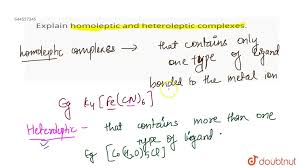 644537345
Explain homoleptic and heteroleptic complexes.
homoleptic complexes → that contains only
one type of ligand
bonded to the metal ion
Eg K4 [Fe(CN)6]
Heteroleptic - that contains more than one
type of ligand.
Eg
doubtnut